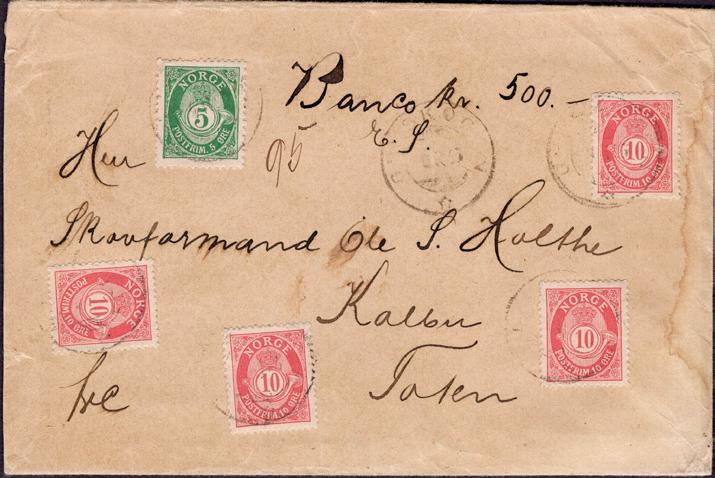 Banco kr. 500.—
E. S.
NORGE
5
POSTFRIM. 5 ØRE
NORGE
10
POSTFRIM. 10 ØRE
Herr
95
Skovformand Ole S. Holthe
NORGE
10
POSTFRIM. 10 ØRE
Kolbu
NORGE
10
POSTFRIM. 10 ØRE
NORGE
10
POSTFRIM. 10 ØRE
Toten